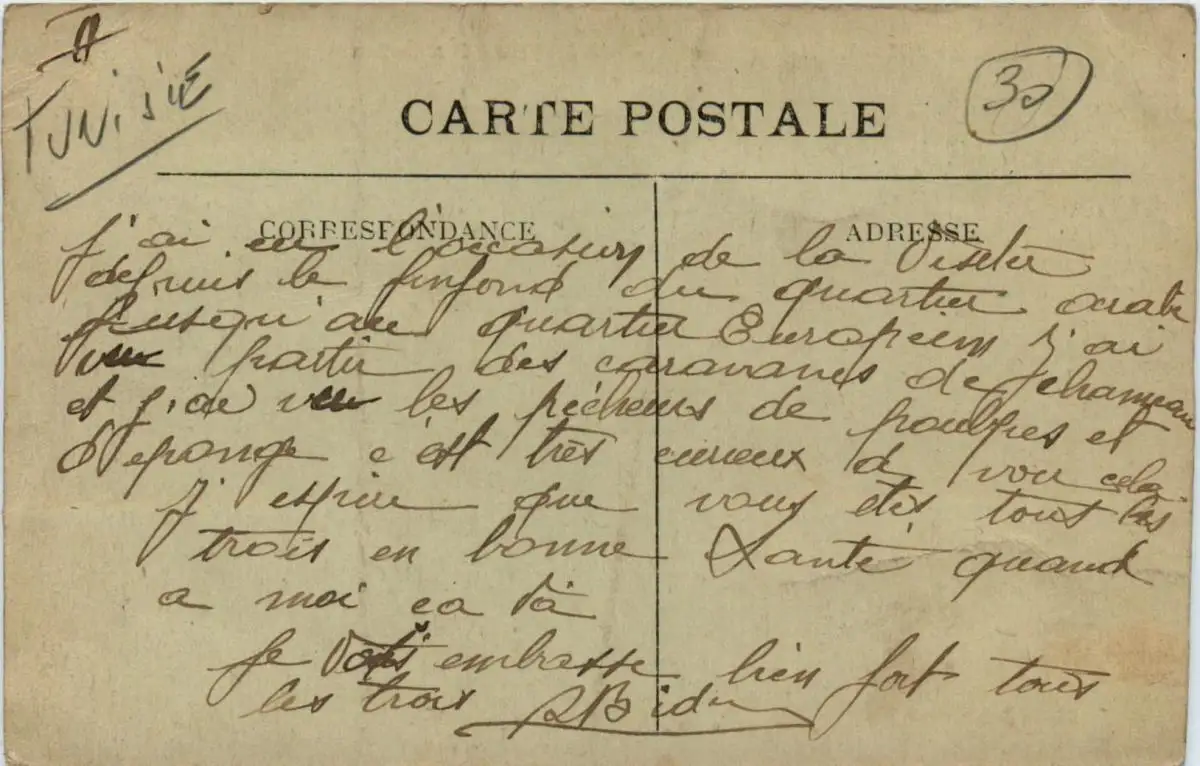 TUNISIE
30
CARTE POSTALE
CORRESPONDANCE
ADRESSE
j'ai eu l'occasion de la visiter
depuis le finfond du quartier arabe
jusqu'au quartier Européen j'ai
vu partir des caravanes de chameau
et j'ai vu les pécheurs de poulpes et
d'eponge c'est très curieux à voir cela
j'espère que vous etes tous les
trois en bonne Santé quand
a moi ca va
Je vous embrasse bien fort tous
les trois